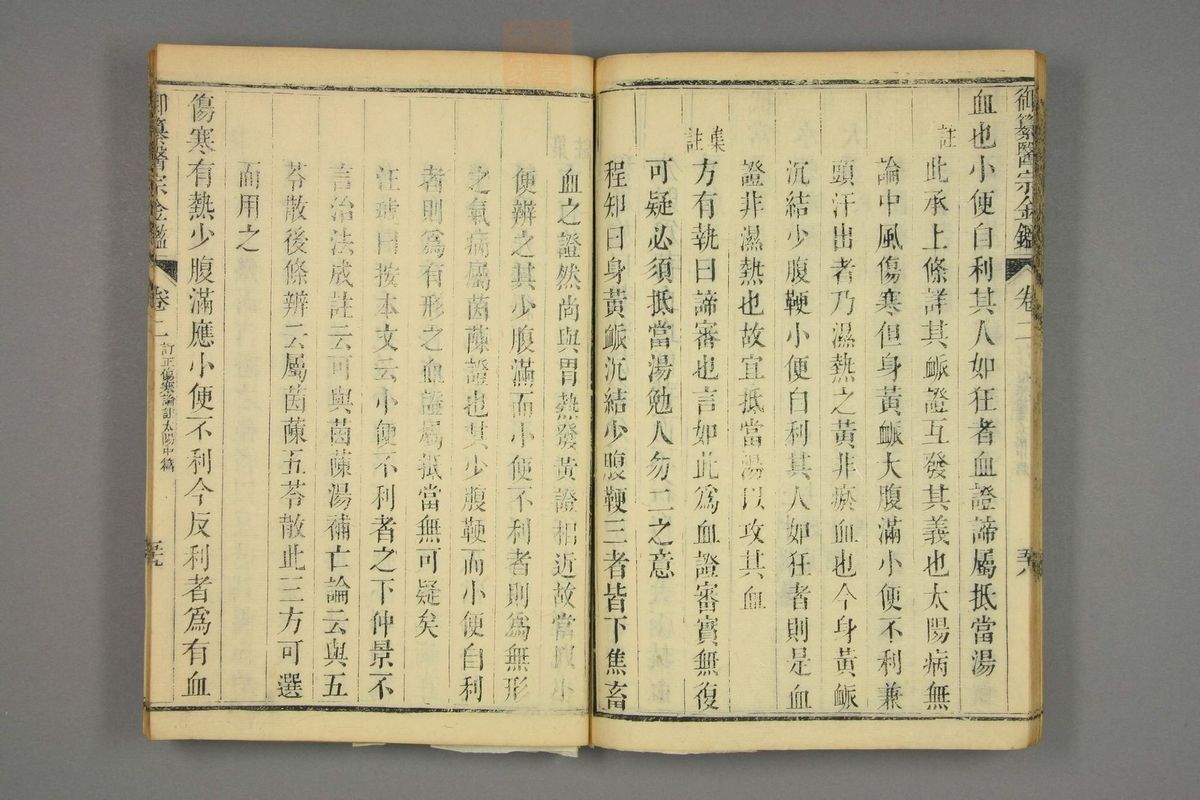 御纂醫宗金鑑 卷二 五十八
血也小便自利其人如狂者血證諦屬抵當湯
註 此承上條詳其脈證互發其義也太陽病無
論中風傷寒但身黃脈大腹滿小便不利兼
頭汗出者乃濕熱之黃非瘀血也今身黃脈
沉結少腹鞕小便自利其人如狂者則是血
證非濕熱也故宜抵當湯以攻其血
集註 方有執曰諦審也言如此為血證審實無復
可疑必須抵當湯勉人勿二之意
程知曰身黃脈沉結少腹鞕三者皆下焦畜
血之證然尚與胃熱發黃證相近故當以小
便辨之其少腹滿而小便不利者則為無形
之氣病屬茵蔯證也其少腹鞕而小便自利
者則為有形之血證屬抵當無可疑矣
汪琥曰按本文云小便不利者之下仲景不
言治法成註云可與茵蔯湯補亡論云與五
苓散後條辨云屬茵蔯五苓散此三方可選
而用之
傷寒有熱少腹滿應小便不利今反利者為有血
御纂醫宗金鑑 卷二 訂正傷寒論註太陽中篇 五十九